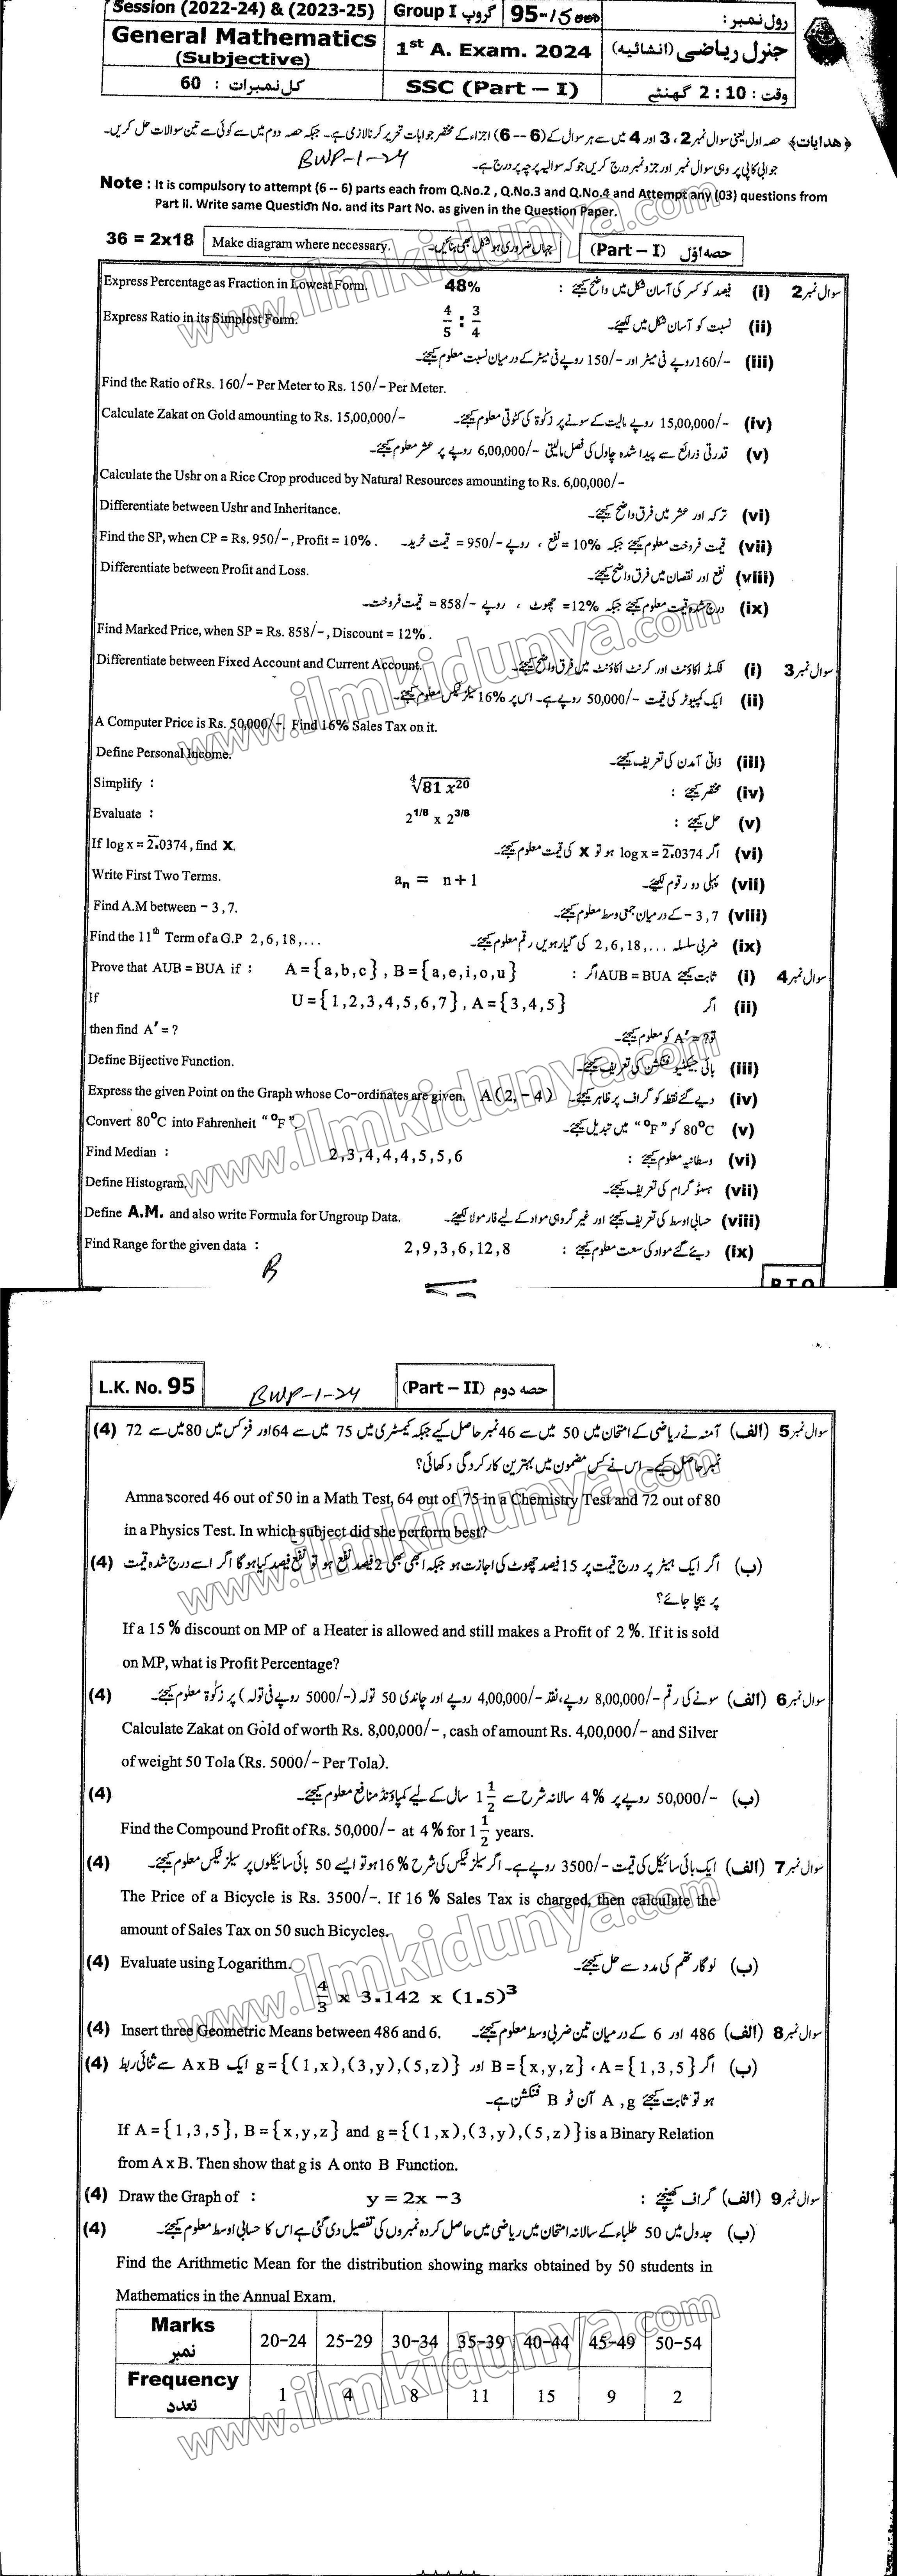 Session (2022-24) & (2023-25) Group I گروپ 95-15000 رول نمبر:
General Mathematics 1st A. Exam. 2024 جنرل ریاضی (انشائیہ)
(Subjective)
کل نمبرات : 60 SSC (Part – I) وقت : 2:10 گھنٹے
﴿ھدایات﴾ حصہ اول یعنی سوال نمبر 2، 3 اور 4 میں سے ہر سوال کے (6 -- 6) اجزاء کے مختصر جوابات تحریر کرنا لازمی ہے۔ جبکہ حصہ دوم میں سے کوئی سے تین سوالات حل کریں۔
جوابی کاپی پر وہی سوال نمبر اور جزو نمبر درج کریں جو کہ سوالیہ پرچہ پر درج ہے۔
BWP-1-24
Note : It is compulsory to attempt (6 -- 6) parts each from Q.No.2 , Q.No.3 and Q.No.4 and Attempt any (03) questions from
Part II. Write same Question No. and its Part No. as given in the Question Paper.
36 = 2x18 Make diagram where necessary. جہاں ضروری ہو شکل بھی بنائیں۔ (Part – I) حصہ اوّل
Express Percentage as Fraction in Lowest Form. 48% فیصد کو کسر کی آسان شکل میں واضح کیجئے : (i) سوال نمبر 2
Express Ratio in its Simplest Form. 4/5 : 3/4 نسبت کو آسان شکل میں لکھیئے۔ (ii)
160/- روپے فی میٹر اور 150/- روپے فی میٹر کے درمیان نسبت معلوم کیجئے۔ (iii)
Find the Ratio of Rs. 160/- Per Meter to Rs. 150/- Per Meter.
Calculate Zakat on Gold amounting to Rs. 15,00,000/- 15,00,000/- روپے مالیت کے سونے پر زکوٰۃ کی کٹوتی معلوم کیجئے۔ (iv)
قدرتی ذرائع سے پیدا شدہ چاول کی فصل مالیتی 6,00,000/- روپے پر عشر معلوم کیجئے۔ (v)
Calculate the Ushr on a Rice Crop produced by Natural Resources amounting to Rs. 6,00,000/-
Differentiate between Ushr and Inheritance. ترکہ اور عشر میں فرق واضح کیجئے۔ (vi)
Find the SP, when CP = Rs. 950/- , Profit = 10% . قیمت فروخت معلوم کیجئے جبکہ 10% = نفع ، روپے 950/- = قیمت خرید۔ (vii)
Differentiate between Profit and Loss. نفع اور نقصان میں فرق واضح کیجئے۔ (viii)
درج شدہ قیمت معلوم کیجئے جبکہ 12% = چھوٹ ، روپے 858/- = قیمت فروخت۔ (ix)
Find Marked Price, when SP = Rs. 858/- , Discount = 12% .
Differentiate between Fixed Account and Current Account. فکسڈ اکاؤنٹ اور کرنٹ اکاؤنٹ میں فرق واضح کیجئے۔ (i) سوال نمبر 3
ایک کمپیوٹر کی قیمت 50,000/- روپے ہے۔ اس پر 16% سیلز ٹیکس معلوم کیجئے۔ (ii)
A Computer Price is Rs. 50,000/-. Find 16% Sales Tax on it.
Define Personal Income. ذاتی آمدن کی تعریف کیجئے۔ (iii)
Simplify : ∜(81 x²⁰) مختصر کیجئے : (iv)
Evaluate : 2^1/8 x 2^3/8 حل کیجئے : (v)
If log x = 2̅.0374 , find X. اگر log x = 2̅.0374 ہو تو X کی قیمت معلوم کیجئے۔ (vi)
Write First Two Terms. aₙ = n+1 پہلی دو رقوم لکھیئے۔ (vii)
Find A.M between – 3 , 7. – 3 , 7 کے درمیان جمعی وسط معلوم کیجئے۔ (viii)
Find the 11th Term of a G.P 2 , 6 , 18 , . . . ضربی سلسلہ 2 , 6 , 18 , . . . کی گیارہویں رقم معلوم کیجئے۔ (ix)
Prove that AUB = BUA if : A = {a,b,c} , B = {a,e,i,o,u} ثابت کیجئے AUB = BUA اگر : (i) سوال نمبر 4
If U = {1,2,3,4,5,6,7} , A = {3,4,5} اگر (ii)
then find A′ = ? تو A′ = ? کو معلوم کیجئے۔
Define Bijective Function. بائی جیکٹیو فنکشن کی تعریف کیجئے۔ (iii)
Express the given Point on the Graph whose Co-ordinates are given. A(2, – 4) دیے گئے نقطہ کو گراف پر ظاہر کیجئے۔ (iv)
Convert 80°C into Fahrenheit “ °F ”. 80°C کو “ °F ” میں تبدیل کیجئے۔ (v)
Find Median : 2,3,4,4,4,5,5,6 وسطانیہ معلوم کیجئے : (vi)
Define Histogram. ہسٹوگرام کی تعریف کیجئے۔ (vii)
Define A.M. and also write Formula for Ungroup Data. حسابی اوسط کی تعریف کیجئے اور غیر گروہی مواد کے لیے فارمولا لکھیئے۔ (viii)
Find Range for the given data : 2,9,3,6,12,8 دیئے گئے مواد کی سعت معلوم کیجئے : (ix)
P.T.O
L.K. No. 95 BWP-1-24 (Part – II) حصہ دوم
سوال نمبر 5 (الف) آمنہ نے ریاضی کے امتحان میں 50 میں سے 46 نمبر حاصل کیے جبکہ کیمسٹری میں 75 میں سے 64 اور فزکس میں 80 میں سے 72 (4)
نمبر حاصل کیے۔ اس نے کس مضمون میں بہترین کارکردگی دکھائی؟
Amna scored 46 out of 50 in a Math Test, 64 out of 75 in a Chemistry Test and 72 out of 80
in a Physics Test. In which subject did she perform best?
(ب) اگر ایک ہیٹر پر درج قیمت پر 15 فیصد چھوٹ کی اجازت ہو جبکہ ابھی بھی 2 فیصد نفع ہو تو نفع فیصد کیا ہو گا اگر اسے درج شدہ قیمت (4)
پر بیچا جائے؟
If a 15 % discount on MP of a Heater is allowed and still makes a Profit of 2 %. If it is sold
on MP, what is Profit Percentage?
سوال نمبر 6 (الف) سونے کی رقم 8,00,000/- روپے، نقد 4,00,000/- روپے اور چاندی 50 تولہ (5000/- روپے فی تولہ) پر زکوٰۃ معلوم کیجئے۔ (4)
Calculate Zakat on Gold of worth Rs. 8,00,000/- , cash of amount Rs. 4,00,000/- and Silver
of weight 50 Tola (Rs. 5000/- Per Tola).
(ب) 50,000/- روپے پر 4 % سالانہ شرح سے 1 1/2 سال کے لیے کمپاؤنڈ منافع معلوم کیجئے۔ (4)
Find the Compound Profit of Rs. 50,000/- at 4 % for 1 1/2 years.
سوال نمبر 7 (الف) ایک بائی سائیکل کی قیمت 3500/- روپے ہے۔ اگر سیلز ٹیکس کی شرح 16 % ہو تو ایسے 50 بائی سائیکلوں پر سیلز ٹیکس معلوم کیجئے۔ (4)
The Price of a Bicycle is Rs. 3500/-. If 16 % Sales Tax is charged, then calculate the
amount of Sales Tax on 50 such Bicycles.
(4) Evaluate using Logarithm. لوگارتھم کی مدد سے حل کیجئے۔ (ب)
4/3 x 3.142 x (1.5)³
(4) Insert three Geometric Means between 486 and 6. 486 اور 6 کے درمیان تین ضربی وسط معلوم کیجئے۔ (الف) سوال نمبر 8
(ب) اگر A = {1,3,5} ، B = {x,y,z} اور g = {(1,x),(3,y),(5,z)} ایک A x B سے ثنائی ربط (4)
ہو تو ثابت کیجئے A , g آن ٹو B فنکشن ہے۔
If A = {1,3,5} , B = {x,y,z} and g = {(1,x),(3,y),(5,z)} is a Binary Relation
from A x B. Then show that g is A onto B Function.
(4) Draw the Graph of : y = 2x – 3 گراف کھینچیئے : (الف) سوال نمبر 9
(ب) جدول میں 50 طلباء کے سالانہ امتحان میں ریاضی میں حاصل کردہ نمبروں کی تفصیل دی گئی ہے اس کا حسابی اوسط معلوم کیجئے۔ (4)
Find the Arithmetic Mean for the distribution showing marks obtained by 50 students in
Mathematics in the Annual Exam.
Marks نمبر 20–24 25–29 30–34 35–39 40–44 45–49 50–54
Frequency تعداد 1 4 8 11 15 9 2
www.ilmkidunya.com